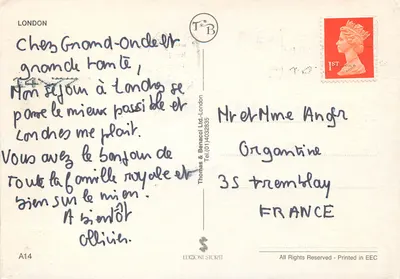 LONDON
Chez Grand-oncle et
grande tante,
Mon séjour à Londres se
passe le mieux possible et
Londres me plait.
Vous avez le bonjour de
toute la famille royale et
bien sur le mien.
A bientôt
Olivier.
A14
TCB
Thomas & Benacci Ltd.-London
Tel.(01)4032835
1ST
Mr et Mme Anger
Organtine
35 Tremblay
FRANCE
EDIZIONI STORTI
All Rights Reserved - Printed in EEC